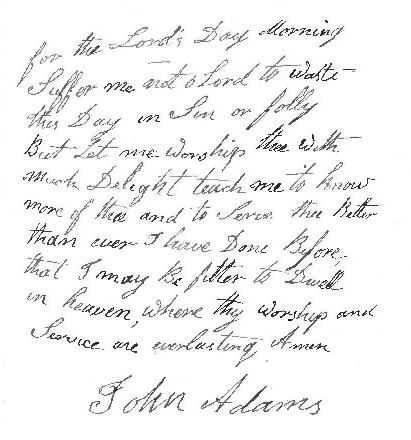 for the Lord's Day Morning
Suffor me not o Lord to waste
this Day in Sin or folly
But Let me worship thee with
much Delight teach me to know
more of thee and to Serve thee Better
than ever I have Done Before
that I may Be fitter to Dwell
in heaven, where thy worship and
Service are everlasting Amen
John Adams